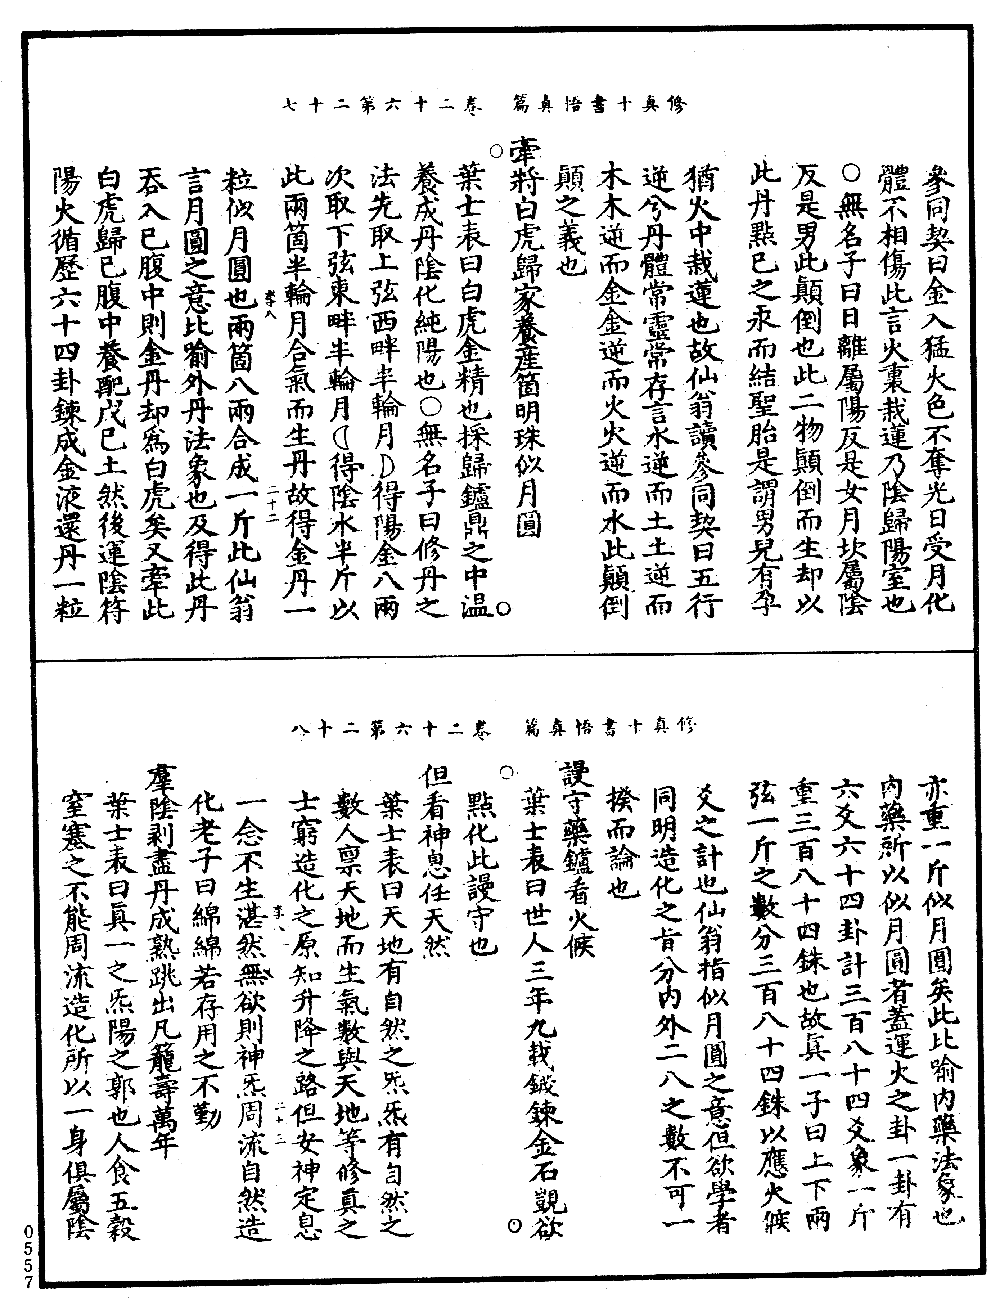 修真十書悟真篇　卷二十六第二十七
參同契曰金入猛火色不奪光日受月化
體不相傷此言火裏栽蓮乃陰歸陽室也
○無名子曰日離屬陽反是女月坎屬陰
反是男此顛倒也此二物顛倒而生却以
此丹點己之汞而結聖胎是謂男兒有孕
猶火中栽蓮也故仙翁讀參同契曰五行
逆兮丹體常靈常存言水逆而土土逆而
木木逆而金金逆而火火逆而水此顛倒
顛之義也
牽將白虎歸家養產箇明珠似月圓
葉士表曰白虎金精也採歸鑪鼎之中温
養成丹陰化純陽也○無名子曰修丹之
法先取上弦西畔半輪月☽得陽金八兩
次取下弦東畔半輪月☾得陰水半斤以
此兩箇半輪月合氣而生丹故得金丹一
粒似月圓也兩箇八兩合成一斤此仙翁
李八
二十二
言月圓之意比喻外丹法象也及得此丹
吞入己腹中則金丹却為白虎矣又牽此
白虎歸己腹中養配戊己土然後運陰符
陽火循歷六十四卦鍊成金液還丹一粒
修真十書悟真篇　卷二十六第二十八
亦重一斤似月圓矣此比喻內藥法象也
內藥所以似月圓者蓋運火之卦一卦有
六爻六十四卦計三百八十四爻象一斤
重三百八十四銖也故真一子曰上下兩
弦一斤之數分三百八十四銖以應火候
爻之計也仙翁指似月圓之意但欲學者
同明造化之旨分內外二八之數不可一
揆而論也
謾守藥鑪看火候
葉士表曰世人三年九載鍛鍊金石覬欲
點化此謾守也
但看神息任天然
葉士表曰天地有自然之炁炁有自然之
數人禀天地而生氣數與天地等修真之
士窮造化之原知升降之路但女神定息
一念不生湛然無欲則神炁周流自然造
李八
二十三
化老子曰綿綿若存用之不勤
羣陰剥盡丹成熟跳出凡籠壽萬年
葉士表曰真一之炁陽之郭也人食五穀
窒塞之不能周流造化所以一身俱屬陰
0557